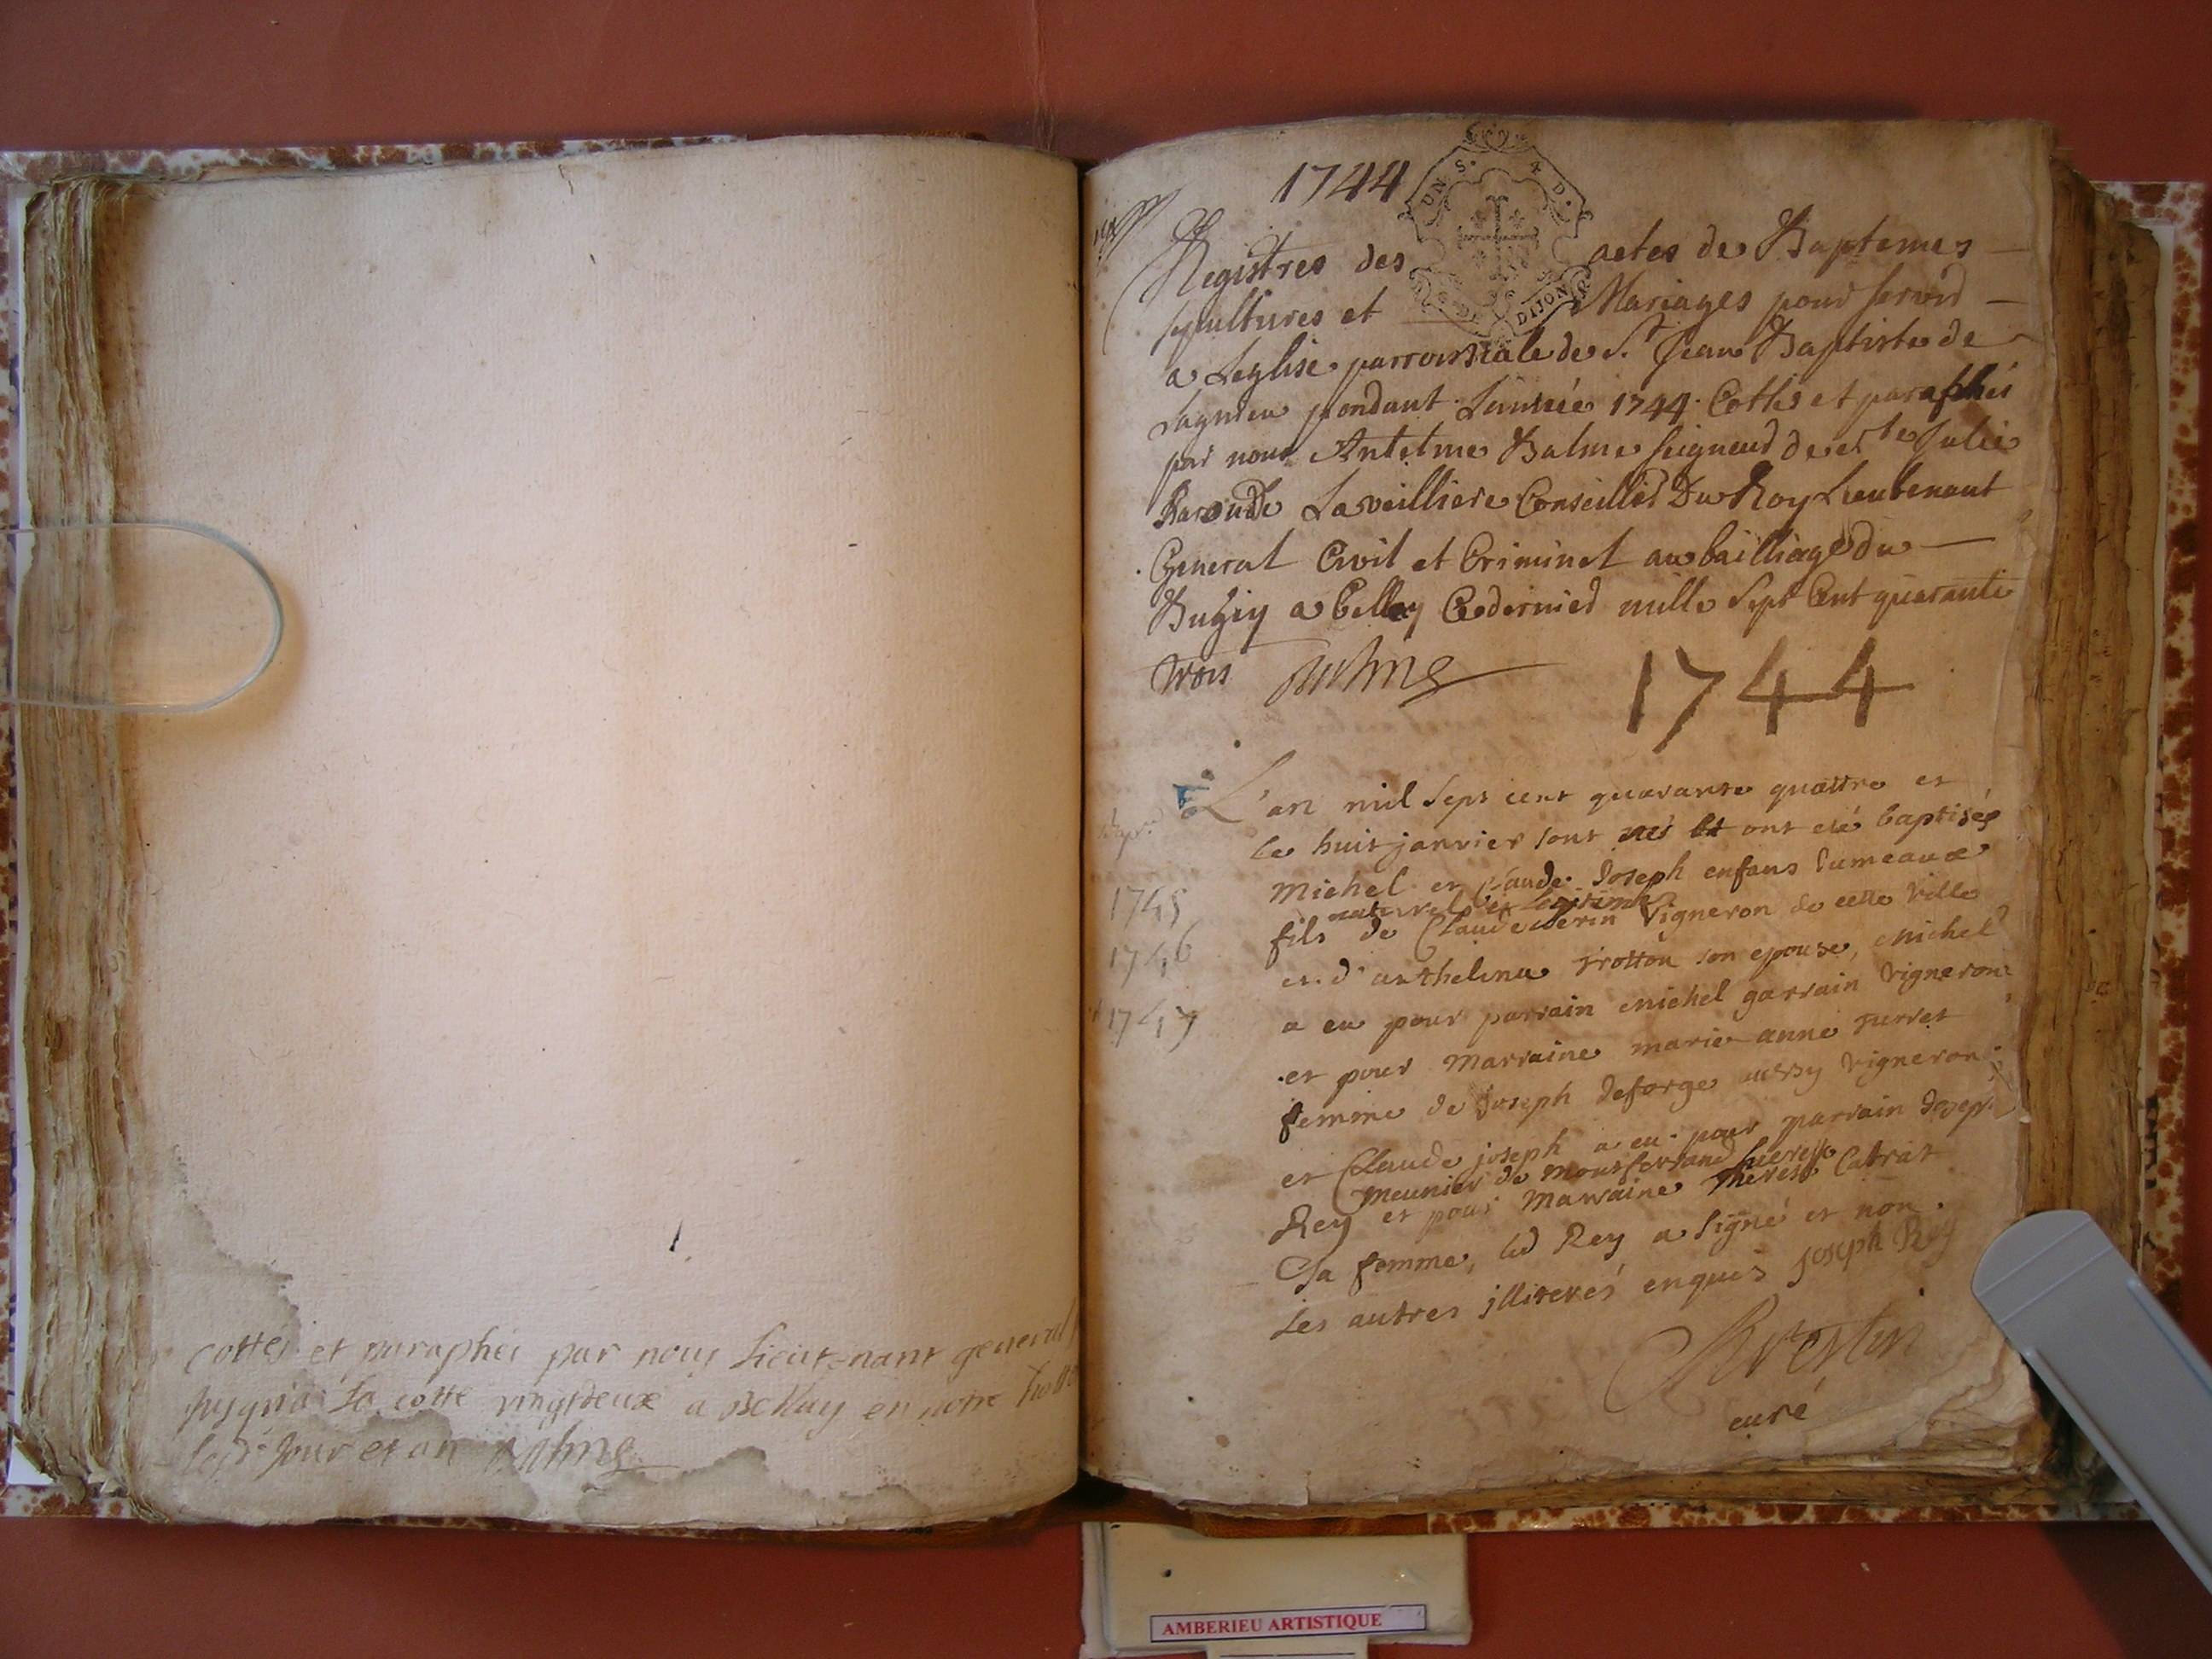 cottés et paraphés par nous Lieutenant general
jusqu'a la cotte vingtdeux a Bellay en notre hotel
led. Jour et an Balme
1744
UN S. 4 D.
DIJON
Registres des actes de Baptemes
sepultures et Mariages pour servir
a Leglise parroissiale de St. Jean Baptiste de
Lagnieu pendant Lannée 1744. Cottés et paraphés
par nous Antelme Balme seigneur de Ste Julie
Baron de La veilliere Conseiller Du Roy Lieutenant
General Civil et Criminel au bailliage du
Bugey a Belley Ce dernier mille sept Cent quarante
trois Balme
1744
L'an mil sept cent quarante quattre et
le huit janvier sont nés et ont eté baptisés
Michel et Claude Joseph enfans Jumeaux
naturels et Legitimes
fils de Claude Vigneron de cette ville
et d'anthelma trotton son epouse, michel
a eu pour parrain michel garrain Vigneron
et pour Marraine marie anne
femme de Joseph deforge aussy vigneron;
et Claude joseph a eu pour parrain Joseph
meunier de montferrand
Rey et pour Marraine Therese
Sa femme, led Rey a signé et non
Les autres illiterés enquis Joseph Rey
curé
1745
1746
1747
AMBERIEU ARTISTIQUE